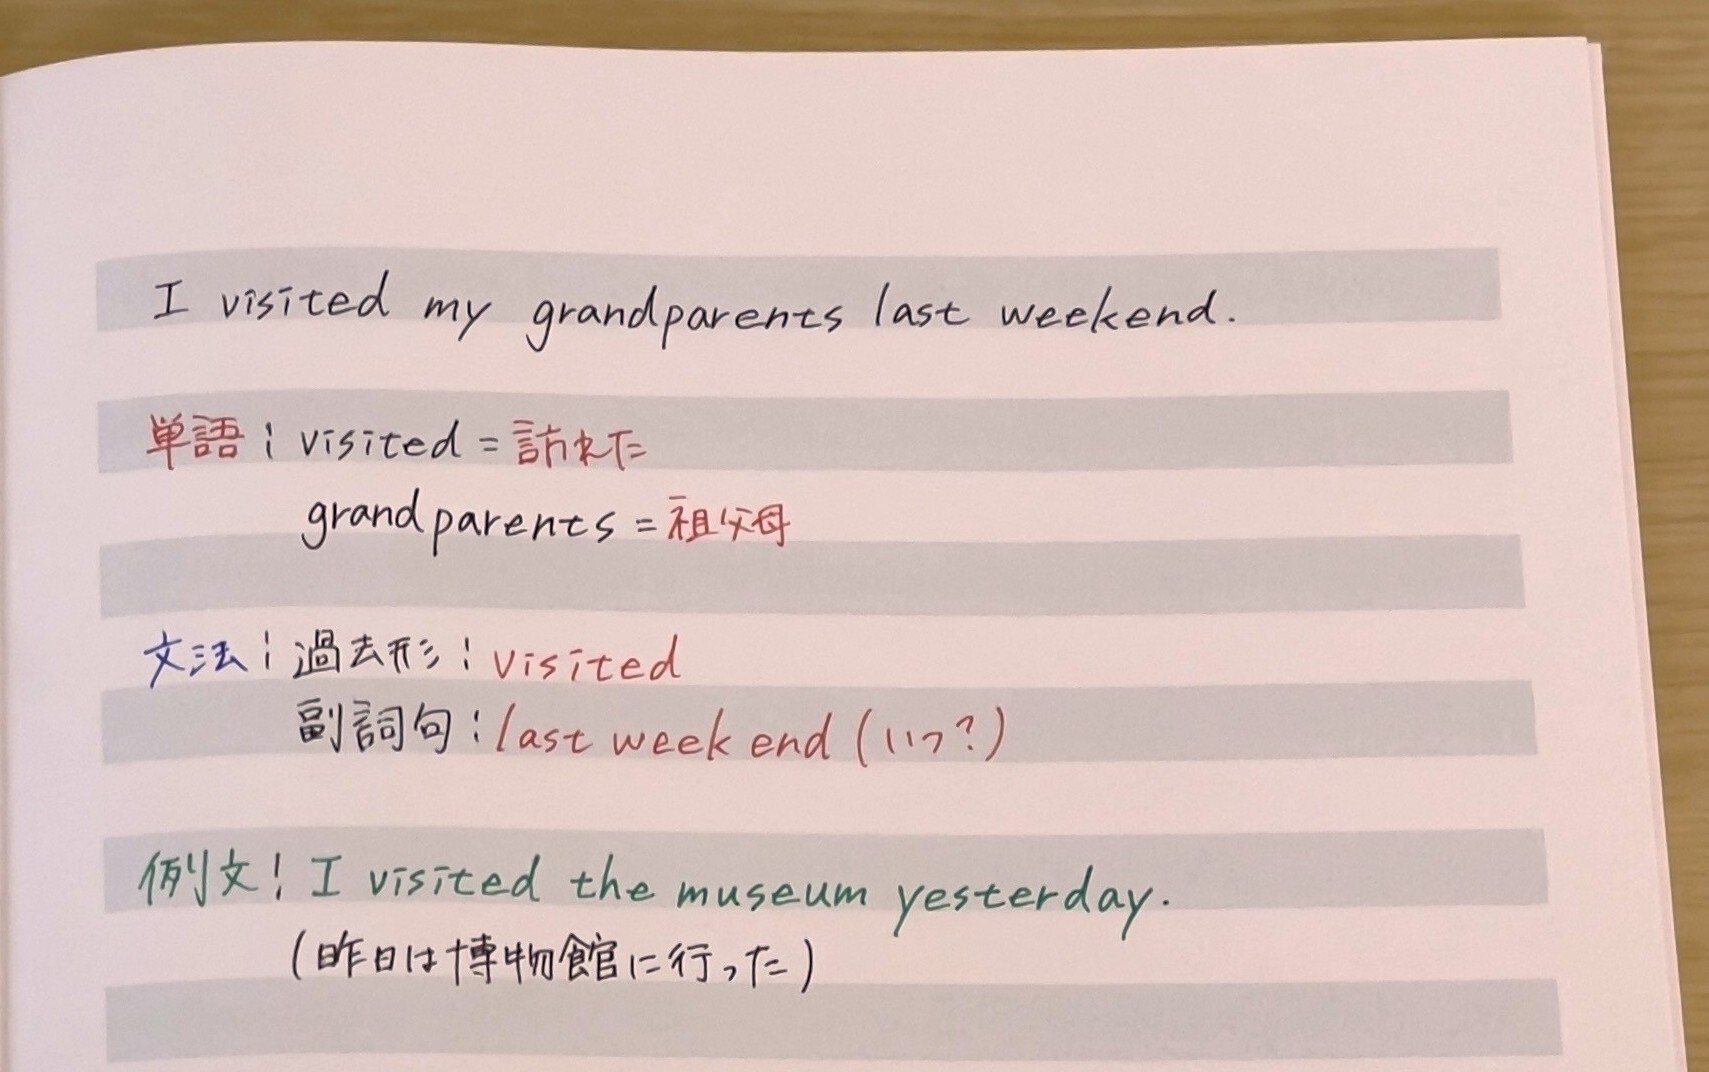 I visited my grandparents last weekend.
単語：visited = 訪れた
grandparents = 祖父母
文法：過去形：visited
副詞句：last week end (いつ？)
例文：I visited the museum yesterday.
(昨日は博物館に行った)